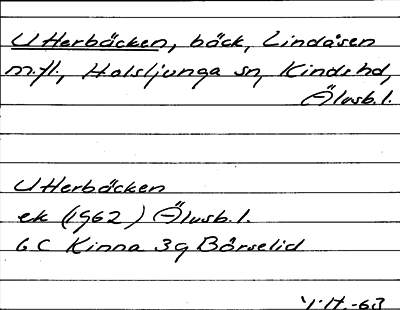 Utterbäcken, bäck, Lindåsen
m.fl., Holsljunga sn, Kinds hd,
Älvsb. l.
Utterbäcken
ek (1962) Älvsb. l.
6C Kinna 3g Bårselid
-63